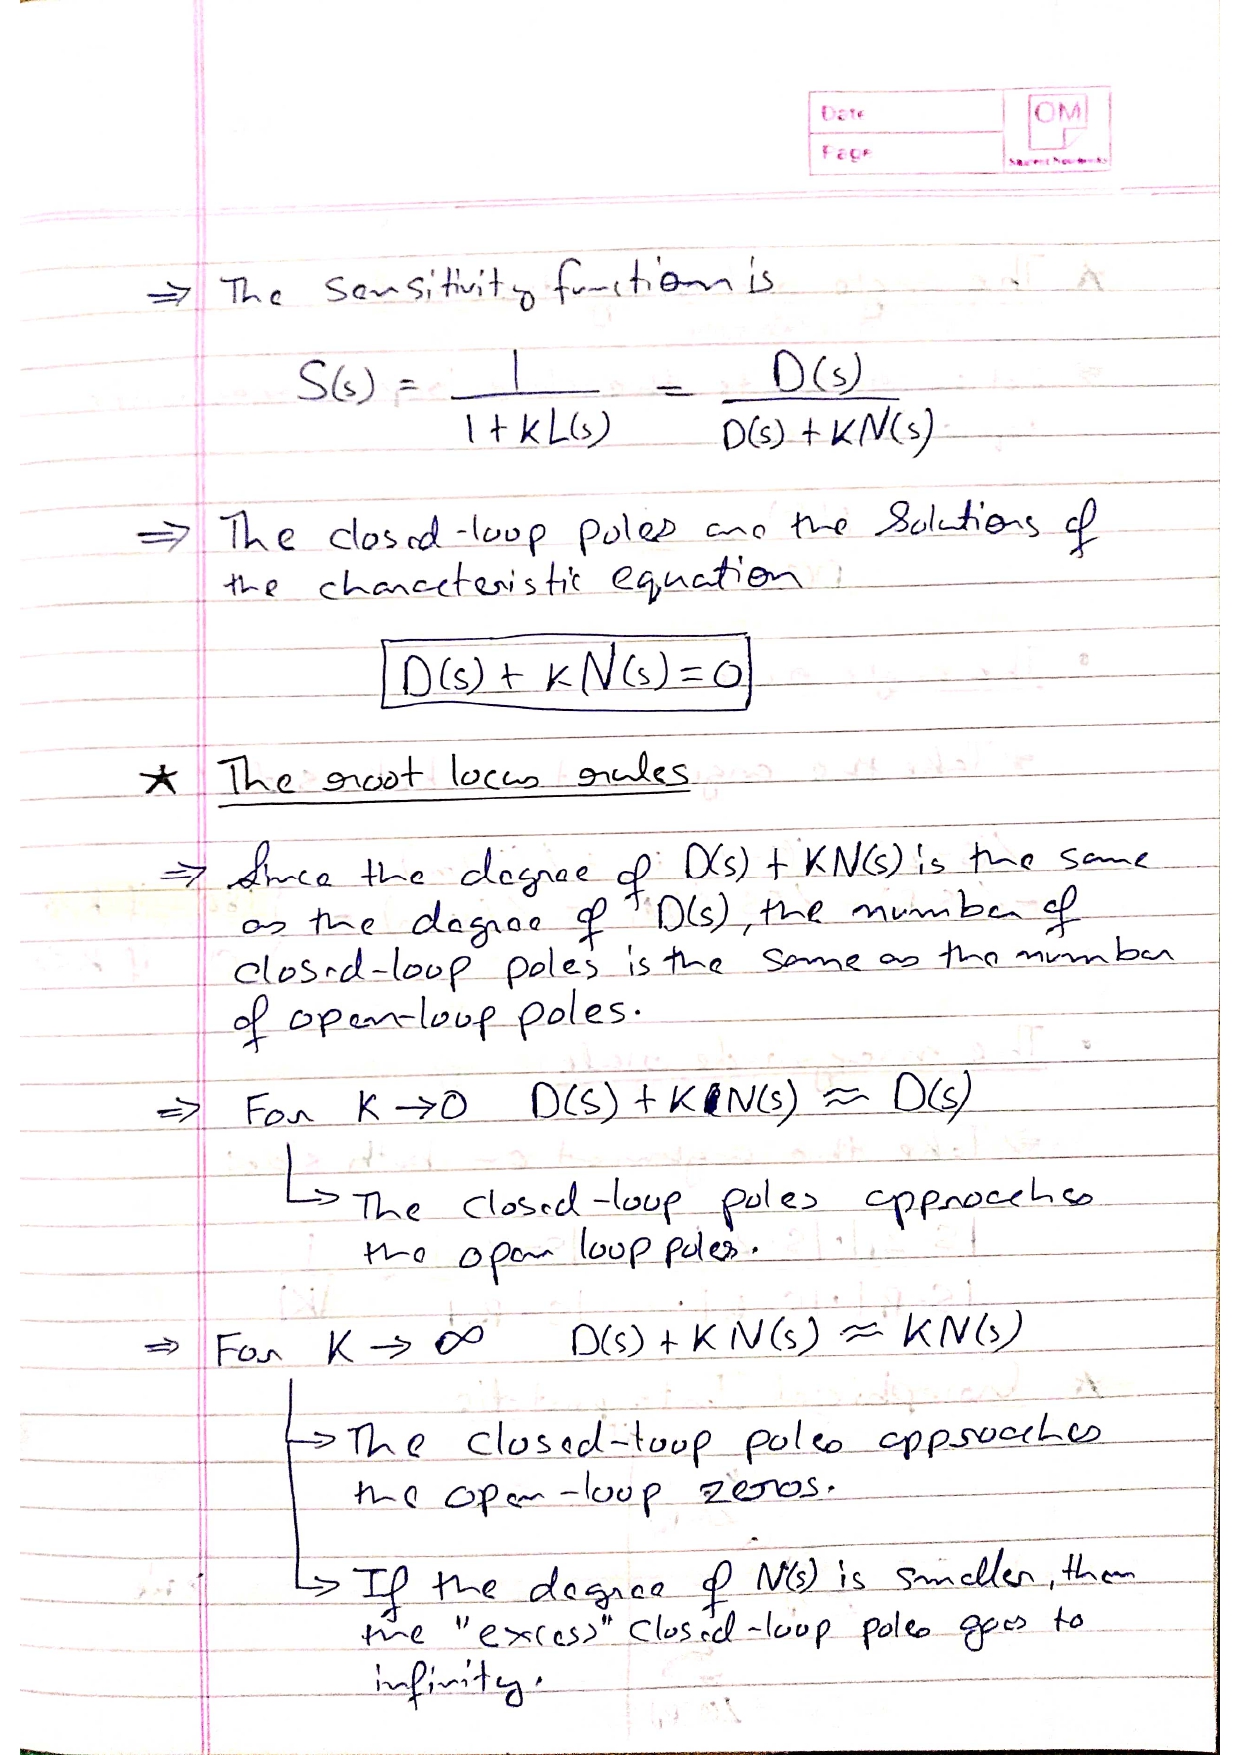 Date
OM
Page
⇒ The sensitivity function is
S(s) = 1 / (1 + KL(s)) = D(s) / (D(s) + KN(s))
⇒ The closed-loop poles are the solutions of
the characteristic equation
D(s) + KN(s) = 0
★ The root locus rules
⇒ Since the degree of D(s) + KN(s) is the same
as the degree of D(s), the number of
closed-loop poles is the same as the number
of open-loop poles.
⇒ For K → 0 D(s) + KN(s) ≈ D(s)
↳ The closed-loop poles approaches
the open loop poles.
⇒ For K → ∞ D(s) + KN(s) ≈ KN(s)
↳ The closed-loop poles approaches
the open-loop zeros.
↳ If the degree of N(s) is smaller, then
the "excess" closed-loop poles goes to
infinity.